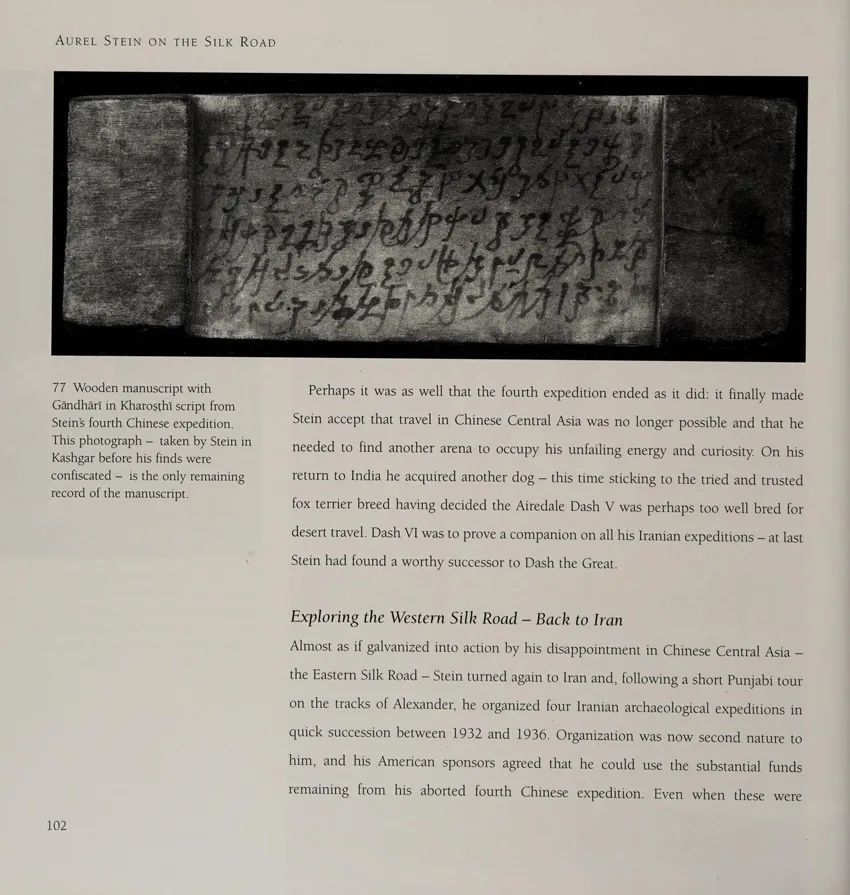 AUREL STEIN ON THE SILK ROAD
77 Wooden manuscript with
Gāndhārī in Kharoṣṭhī script from
Stein's fourth Chinese expedition.
This photograph – taken by Stein in
Kashgar before his finds were
confiscated – is the only remaining
record of the manuscript.
Perhaps it was as well that the fourth expedition ended as it did: it finally made
Stein accept that travel in Chinese Central Asia was no longer possible and that he
needed to find another arena to occupy his unfailing energy and curiosity. On his
return to India he acquired another dog – this time sticking to the tried and trusted
fox terrier breed having decided the Airedale Dash V was perhaps too well bred for
desert travel. Dash VI was to prove a companion on all his Iranian expeditions – at last
Stein had found a worthy successor to Dash the Great.
Exploring the Western Silk Road – Back to Iran
Almost as if galvanized into action by his disappointment in Chinese Central Asia –
the Eastern Silk Road – Stein turned again to Iran and, following a short Punjabi tour
on the tracks of Alexander, he organized four Iranian archaeological expeditions in
quick succession between 1932 and 1936. Organization was now second nature to
him, and his American sponsors agreed that he could use the substantial funds
remaining from his aborted fourth Chinese expedition. Even when these were
102